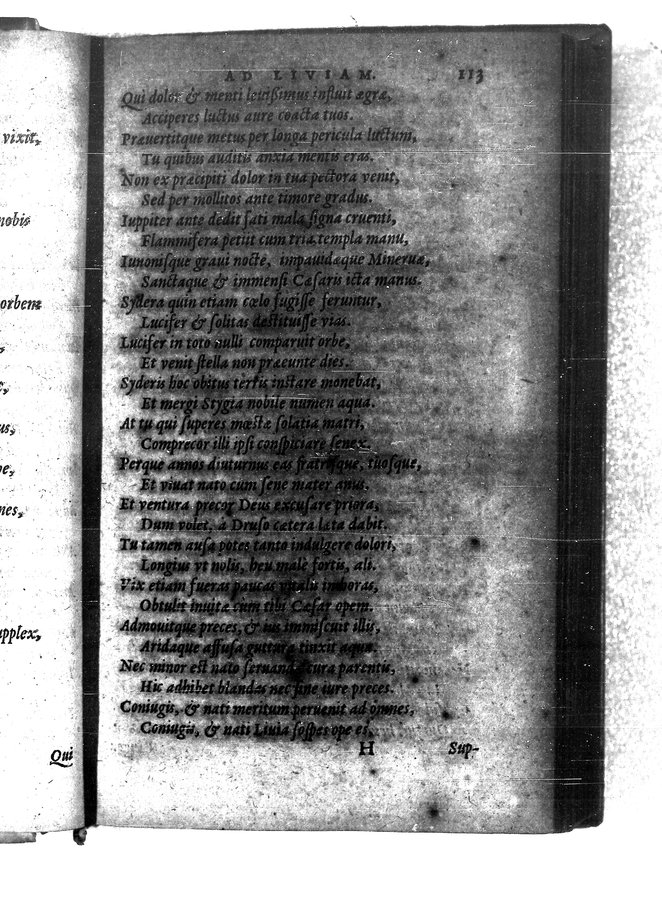 vixit,
nobis
orbem
us,
pe,
nes,
upplex,
Qui
AD LIVIAM. 113
Qui dolor & menti leuißimus influit ægræ,
Acciperes luctus aure coacta tuos.
Præuertitque metus per longa pericula luctum,
Tu quibus auditis anxia mentis eras.
Non ex præcipiti dolor in tua pectora venit,
Sed per mollitos ante timore gradus.
Iuppiter ante dedit fati mala ſigna cruenti,
Flammifera petiit cum tria templa manu,
Iunoniſque graui nocte, impauidæque Mineruæ,
Sanctaque & immenſi Cæſaris icta manus.
Sydera quin etiam cœlo fugiſſe feruntur,
Lucifer & ſolitas deſtituiſſe vias.
Lucifer in toto nulli comparuit orbe,
Et venit ſtella non præeunte dies.
Syderis hoc obitus terris inſtare monebat,
Et mergi Stygia nobile numen aqua.
At tu qui ſuperes mœſtæ ſolatia matri,
Comprecor illi ipſi conſpiciare ſenex.
Perque annos diuturnus eas fratriſque, tuoſque,
Et viuat nato cùm ſene mater anus.
Et ventura precor Deus excuſare priora,
Dum volet, à Druſo cætera læta dabit.
Tu tamen auſa potes tanto indulgere dolori,
Longius vt nolis, heu male fortis, ali.
Vix etiam fueras paucas vitalis in horas,
Obtulit inuitæ cùm tibi Cæſar opem.
Admouitque preces, & ius immiſcuit illis,
Aridaque affuſa guttura tinxit aqua.
Nec minor eſt nato ſeruandæ cura parentis,
Hic adhibet blandas nec ſine iure preces.
Coniugis, & nati meritum peruenit ad omnes,
Coniugis, & nati Liuia ſoſpes ope es,
H Sup-